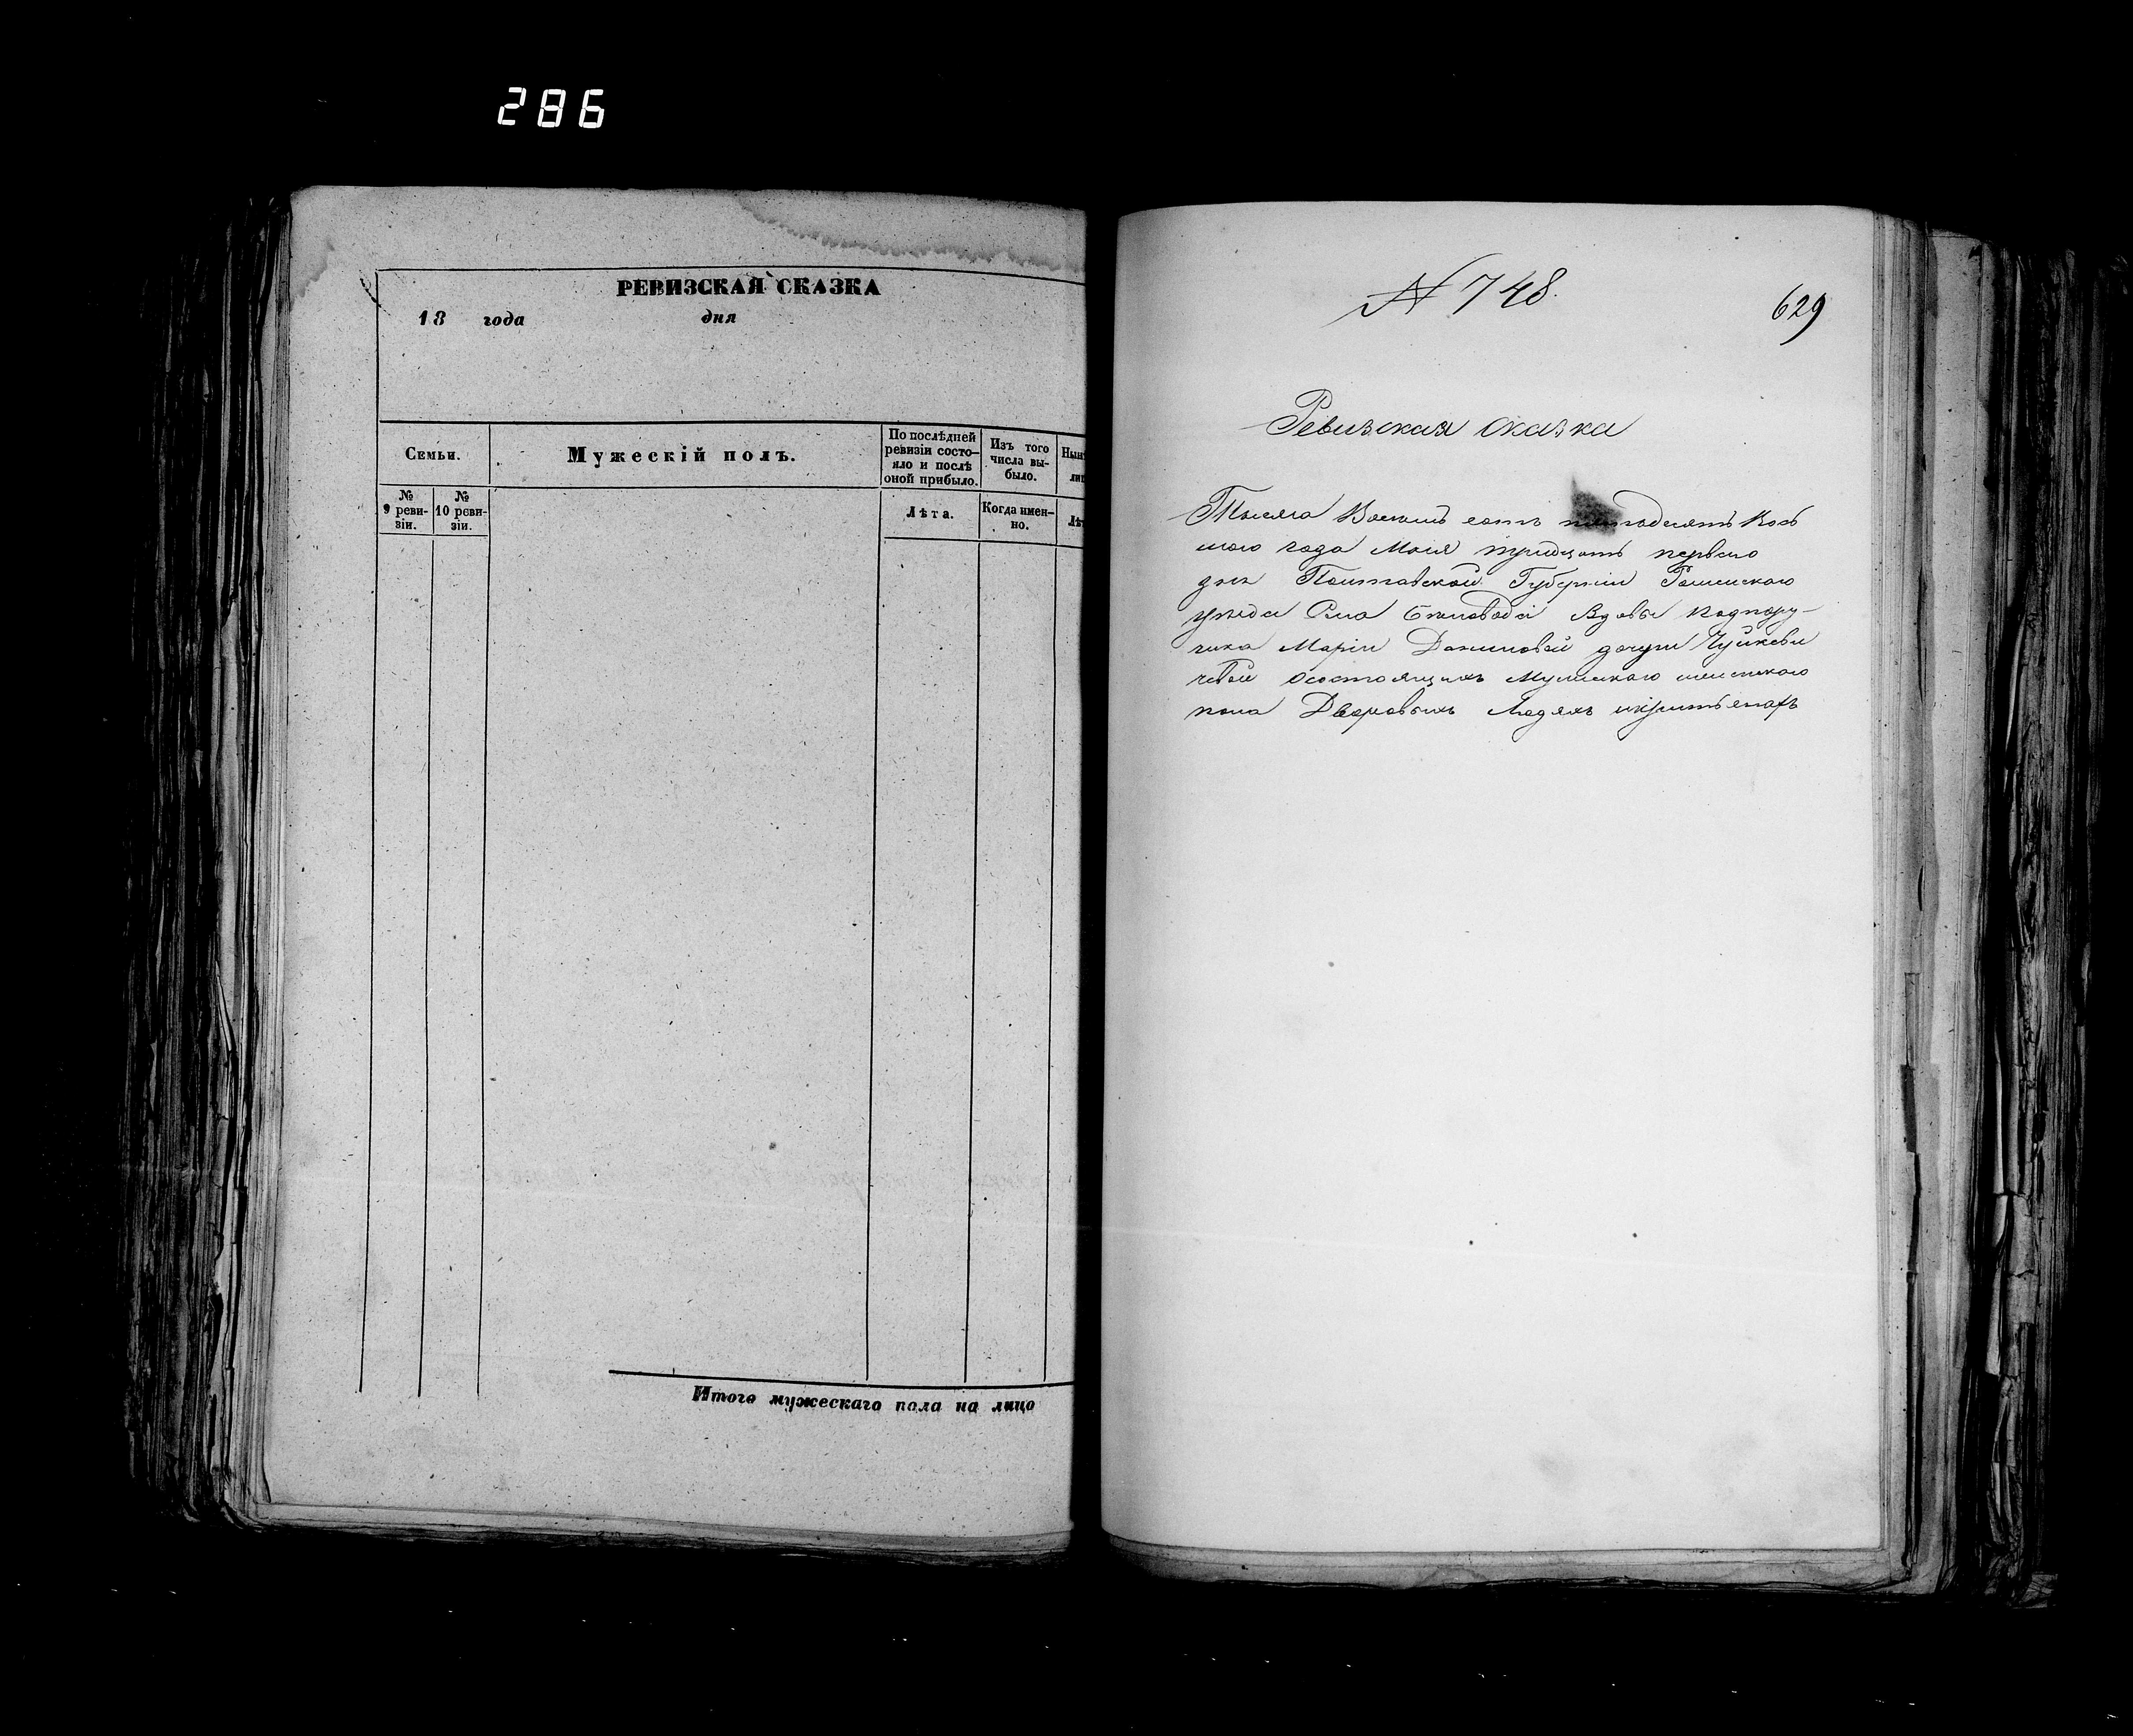 286
РЕВИЗСКАЯ СКАЗКА
18 года дня
Семьи.
Мужескій полъ.
По послѣдней
ревизіи состо-
яло и послѣ
оной прибыло.
Изъ того
числа вы-
было.
№
9 реви-
зіи.
№
10 реви-
зіи.
Лѣта.
Когда имен-
но.
Итого мужескаго пола на лицо
N 748.
629
Ревизская сказка
Тысяча Восемь сотъ пятьдесятъ Вось
мого года Маія тридцать перваго
дня Полтавской Губерніи Роменскаго
уѣзда Села Вдовы Подпору-
чика Маріи Даниловой дочери Чуйкеви
чевой осостоящихъ Мужескаго женскаго
пола Дворовыхъ Людяхъ